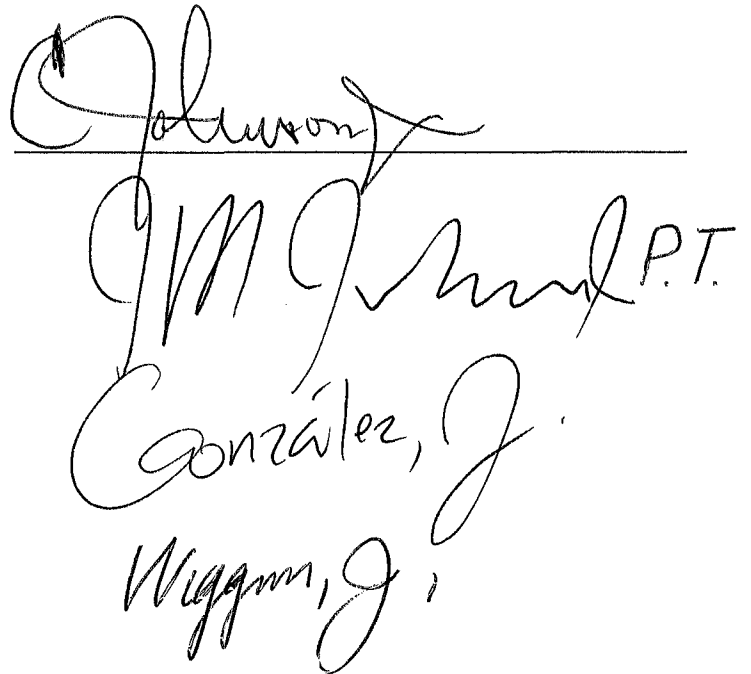 C Johnson, J.
JM Johnson P.T.
González, J.
Wiggins, J.